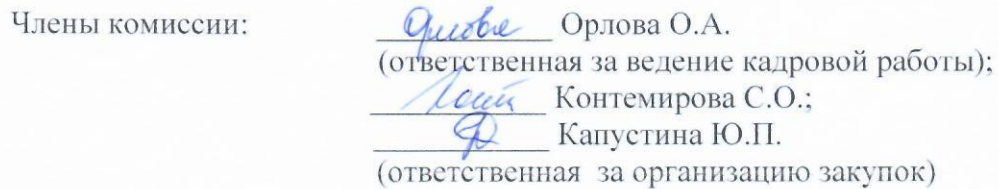 Члены комиссии: Орлова О.А.
(ответственная за ведение кадровой работы);
Контемирова С.О.;
Капустина Ю.П.
(ответственная за организацию закупок)